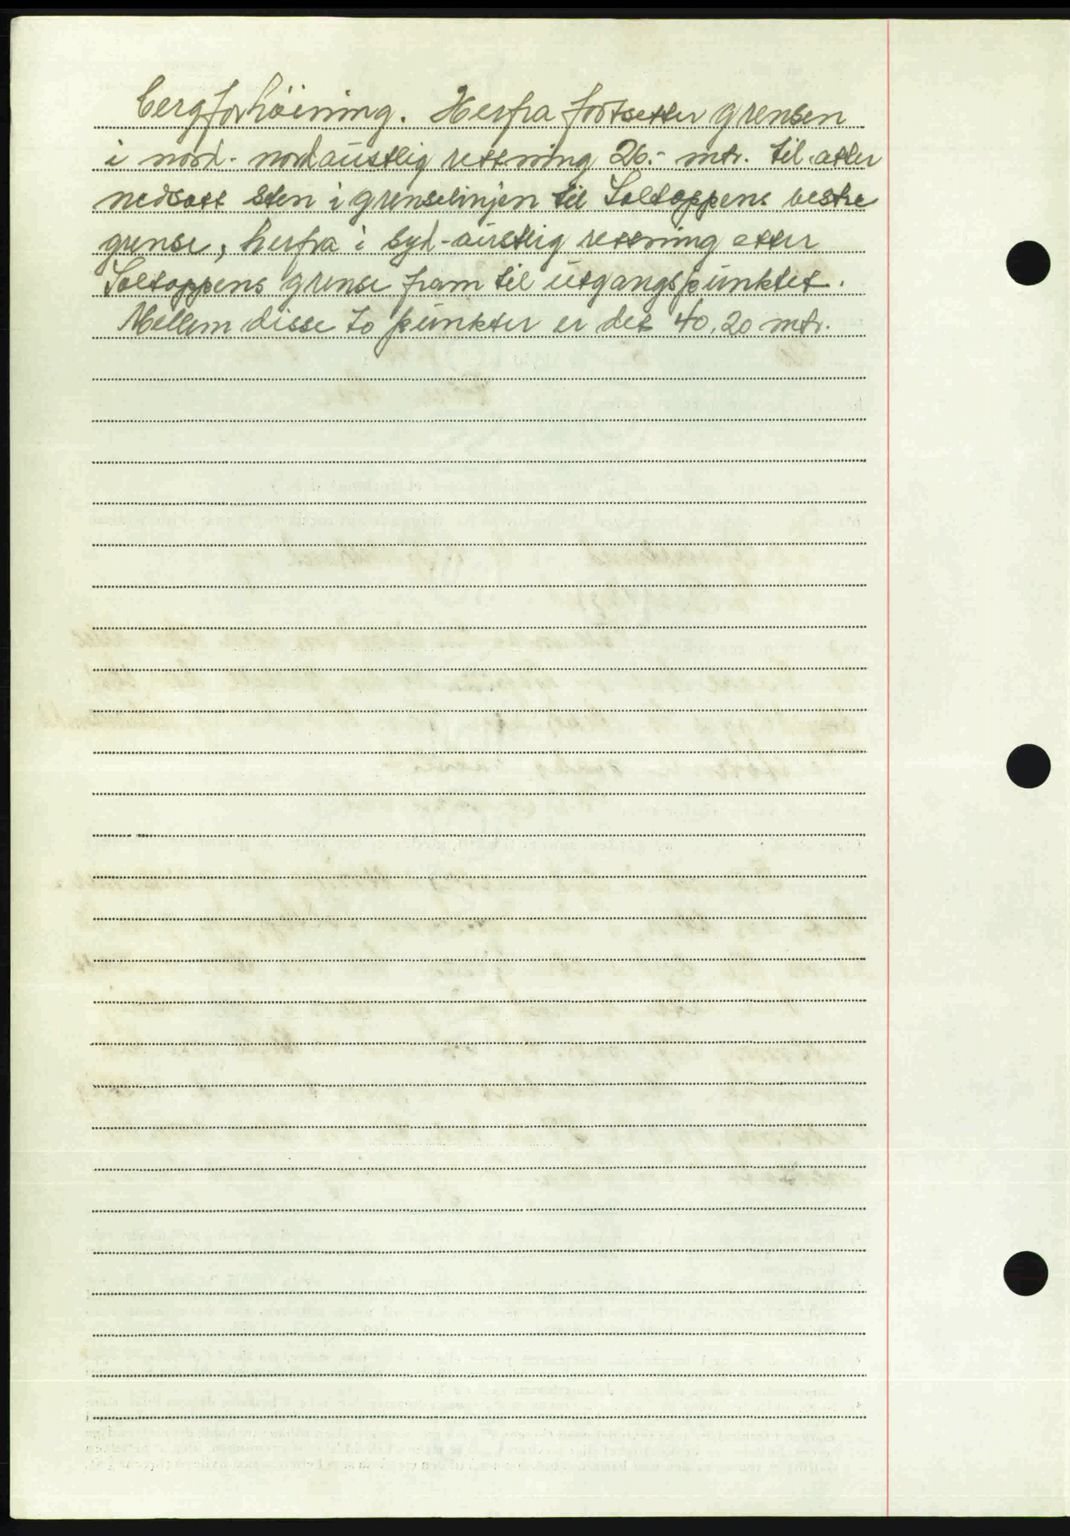 bergforhöining. Herfra fortsetter grensen
i nord-nordaustlig rettning 26.- mtr. til atter
nedsatt sten i grenselinjen til Soltoppens vestre
grense, herfra i syd-austlig rettning etter
Soltoppens grense fram til utgangspunktet.
Mellem disse to punkter er det 40,20 mtr.